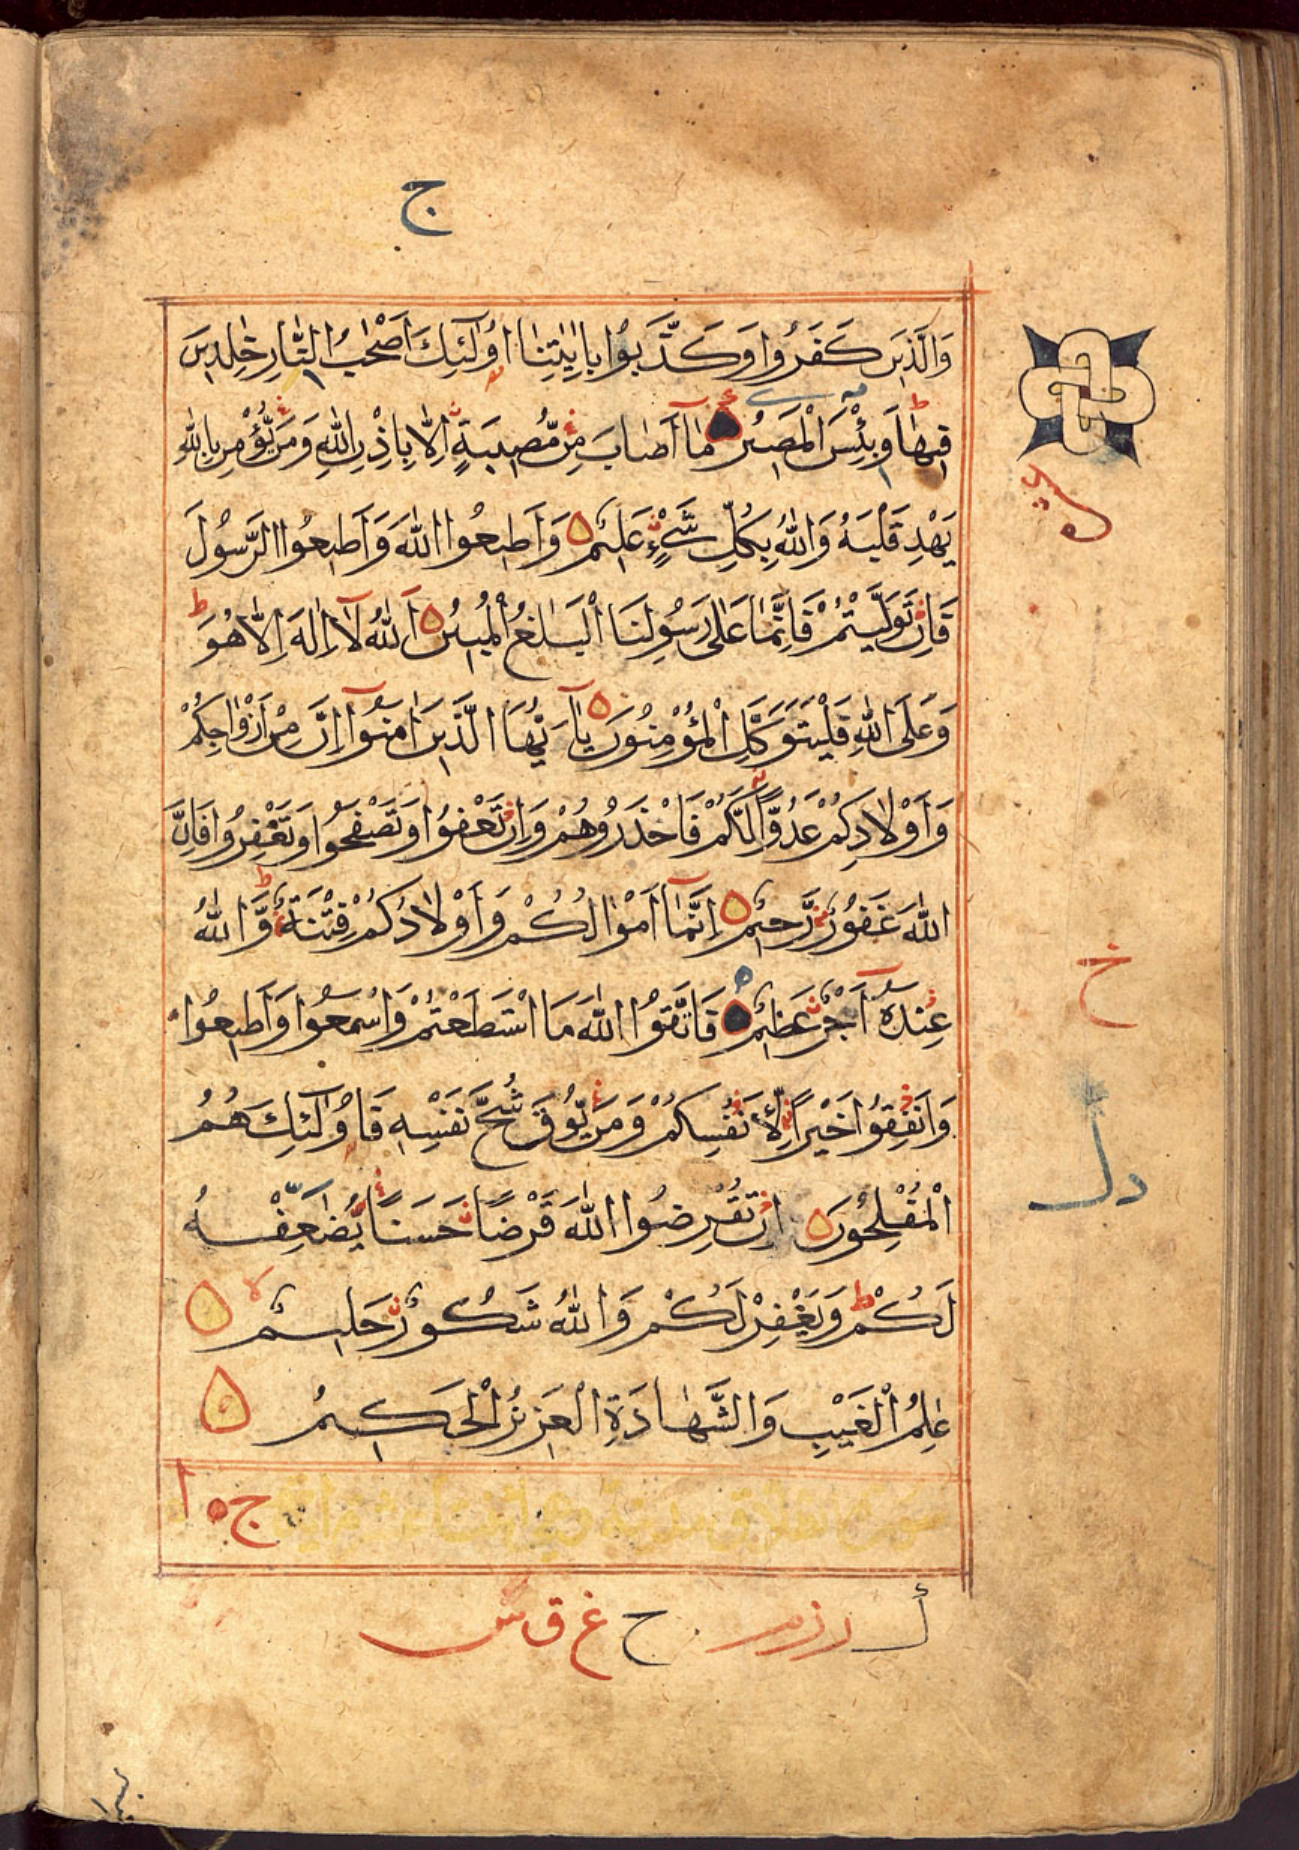 ج
وَالَّذِينَ كَفَرُوا وَكَذَّبُوا بِاٰيٰتِنَا اُولٰٓئِكَ اَصْحٰبُ النَّارِ خٰلِدِينَ
فِيهَا وَبِئْسَ الْمَصِيرُ مَآ اَصَابَ مِنْ مُّصِيبَةٍ اِلَّا بِاِذْنِ اللّٰهِ وَمَنْ يُّؤْمِنْ بِاللّٰهِ
يَهْدِ قَلْبَهُ وَاللّٰهُ بِكُلِّ شَيْءٍ عَلِيمٌ وَاَطِيعُوا اللّٰهَ وَاَطِيعُوا الرَّسُولَ
فَاِنْ تَوَلَّيْتُمْ فَاِنَّمَا عَلٰى رَسُولِنَا الْبَلٰغُ الْمُبِينُ اَللّٰهُ لَآ اِلٰهَ اِلَّا هُوَ ط
وَعَلَى اللّٰهِ فَلْيَتَوَكَّلِ الْمُؤْمِنُونَ يٰٓاَيُّهَا الَّذِينَ اٰمَنُوٓا اِنَّ مِنْ اَزْوَاجِكُمْ
وَاَوْلَادِكُمْ عَدُوًّا لَّكُمْ فَاحْذَرُوهُمْ وَاِنْ تَعْفُوا وَتَصْفَحُوا وَتَغْفِرُوا فَاِنَّ
اللّٰهَ غَفُورٌ رَّحِيمٌ اِنَّمَآ اَمْوَالُكُمْ وَاَوْلَادُكُمْ فِتْنَةٌ ط وَّاللّٰهُ
عِنْدَهٗٓ اَجْرٌ عَظِيمٌ فَاتَّقُوا اللّٰهَ مَا اسْتَطَعْتُمْ وَاسْمَعُوا وَاَطِيعُوا
وَاَنْفِقُوا خَيْرًا لِّاَنْفُسِكُمْ وَمَنْ يُّوقَ شُحَّ نَفْسِهٖ فَاُولٰٓئِكَ هُمُ
الْمُفْلِحُونَ اِنْ تُقْرِضُوا اللّٰهَ قَرْضًا حَسَنًا يُّضٰعِفْهُ
لَكُمْ ط وَيَغْفِرْ لَكُمْ وَاللّٰهُ شَكُورٌ حَلِيمٌ لا
عٰلِمُ الْغَيْبِ وَالشَّهَادَةِ الْعَزِيزُ الْحَكِيمُ
ج
خ
دل
ح غ ق س